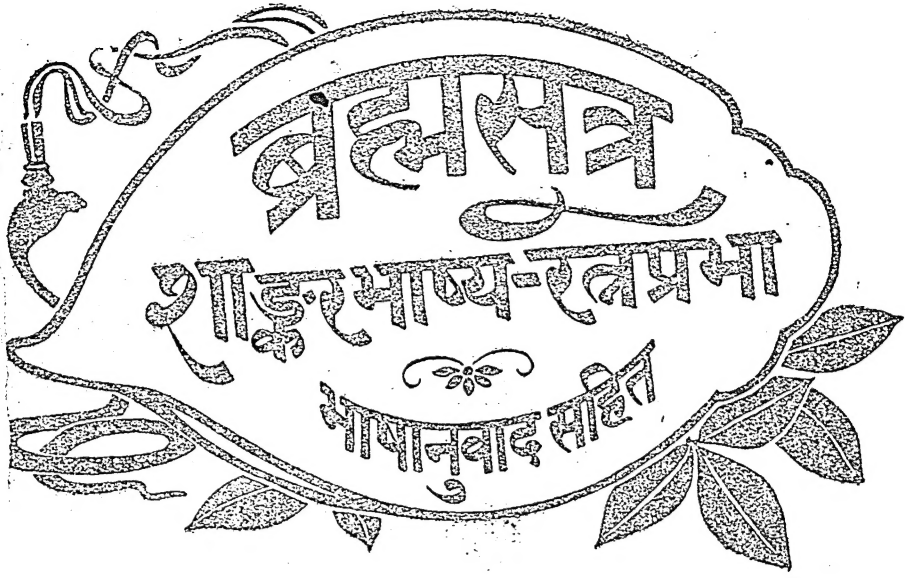 ब्रह्मसूत्र
शाङ्करभाष्य-रत्नप्रभा
भाषानुवाद सहित